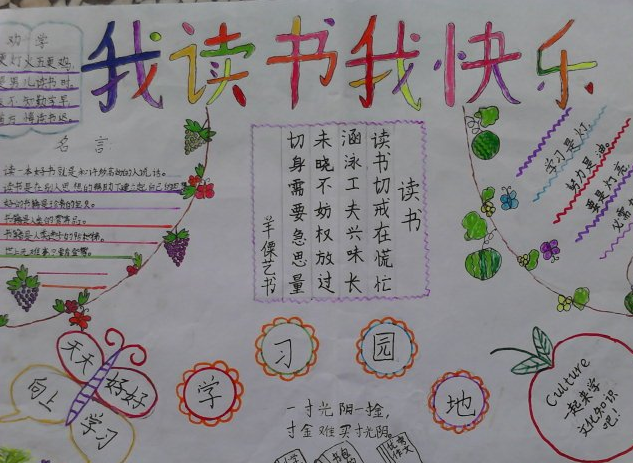 我读书我快乐
劝学
更灯火五更鸡,
是男儿读书时。
不知勤学早,
方悔读书迟。
名言
读一本好书就是和许多高尚的人说话。
读书是在别人思想的帮助下建立起自己的思想
书籍是人类进步的阶梯。
世上无难事只要肯登攀。
读书
读书切戒在慌忙
涵泳工夫兴味长
未晓不妨权放过
切身需要急思量
羊傈艺书
学习是灯
努力是油
要是灯亮
必需
天天
好好
向上
学习
学
习
园
地
一寸光阴一寸金,
寸金难买寸光阴。
优秀
作文
Culture
一起来学
文化知识
吧!